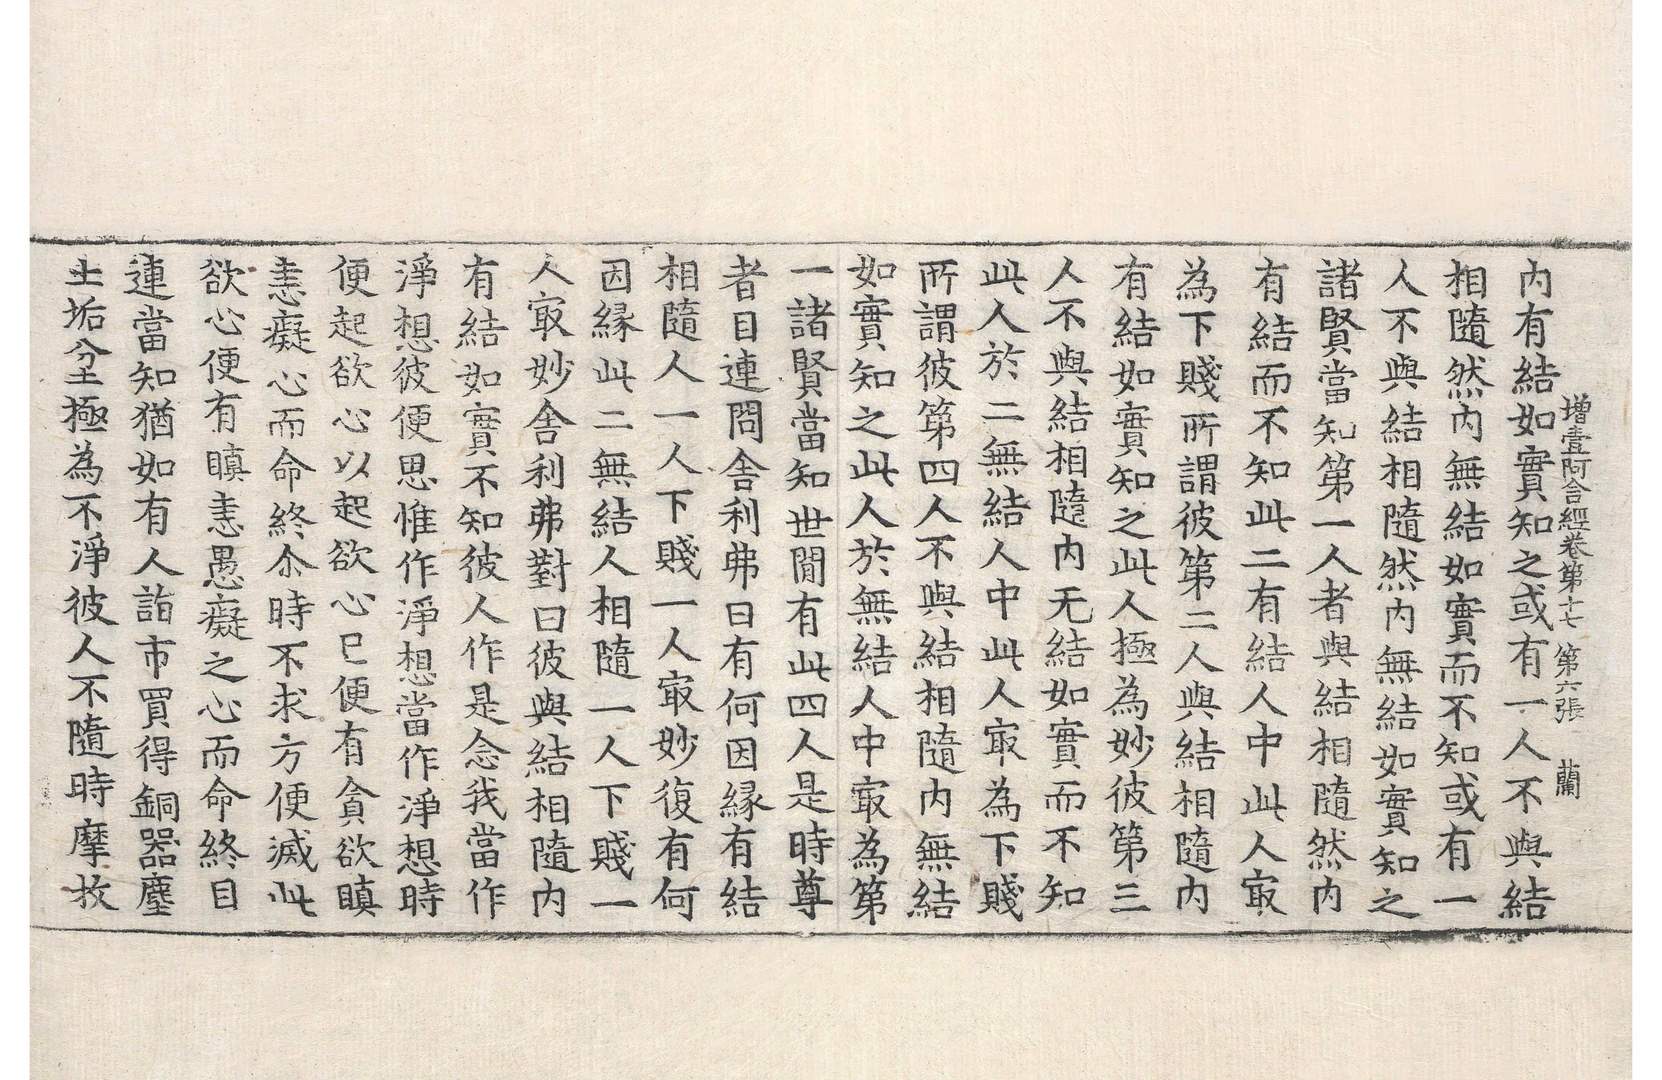 增壹阿含經卷第十七 第六張 蘭
內有結如實知之或有一人不與結
相隨然內無結如實而不知或有一
人不與結相隨然內無結如實知之
諸賢當知第一人者與結相隨然內
有結而不知此二有結人中此人㝡
為下賤所謂彼第二人與結相隨內
有結如實知之此人極為妙彼第三
人不與結相隨內无結如實而不知
此人於二無結人中此人㝡為下賤
所謂彼第四人不與結相隨內無結
如實知之此人於無結人中㝡為第
一諸賢當知世閒有此四人是時尊
者目連問舍利弗曰有何因緣有結
相隨人一人下賤一人㝡妙復有何
因緣此二無結人相隨一人下賤一
人㝡妙舍利弗對曰彼與結相隨內
有結如實不知彼人作是念我當作
淨想彼便思惟作淨想當作淨想時
便起欲心以起欲心已便有貪欲瞋
恚癡心而命終尒時不求方便滅此
欲心便有瞋恚愚癡之心而命終目
連當知猶如有人詣市買得銅器塵
土垢坌極為不淨彼人不隨時摩抆